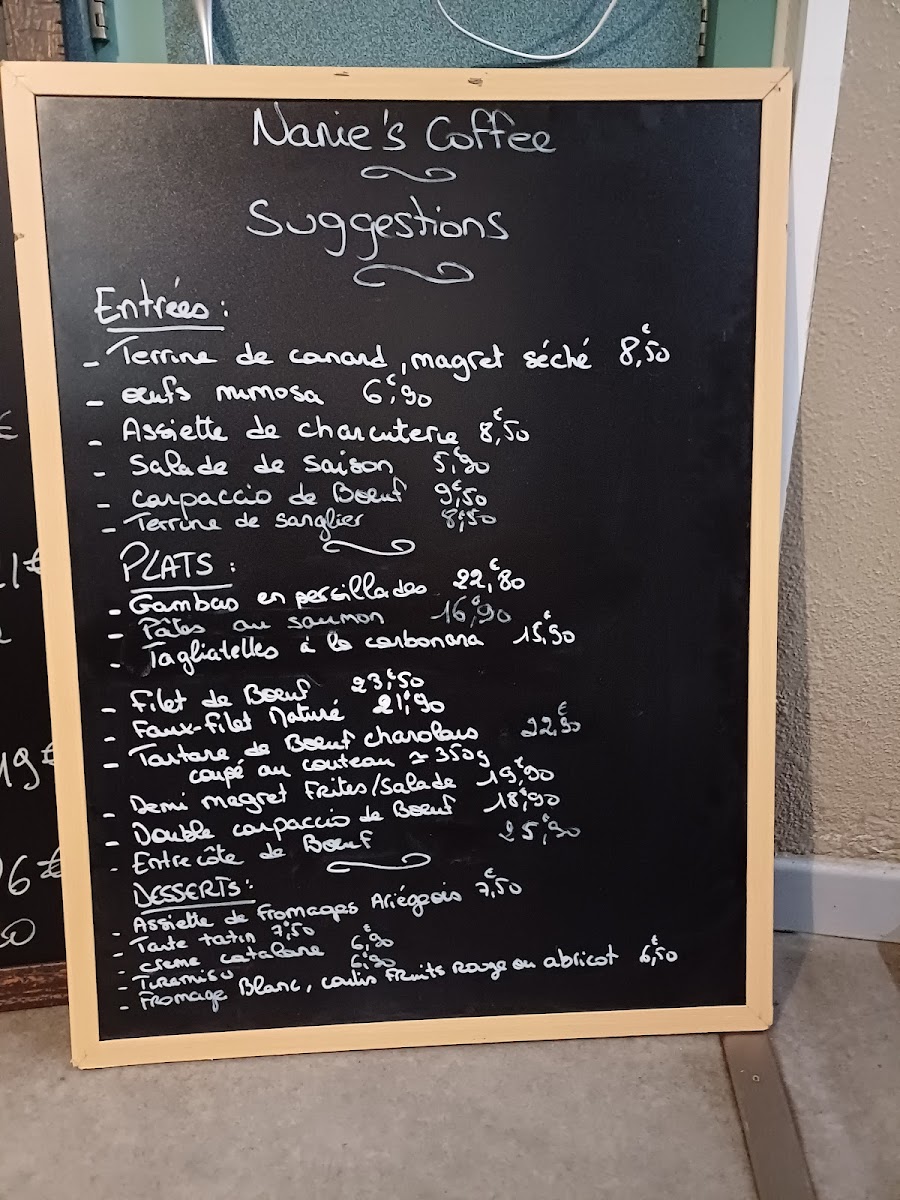 Nanie's Coffee
Suggestions
Entrées :
- Terrine de canard, magret séché 8,€50
- œufs mimosa 6,€90
- Assiette de charcuterie 8,€50
- Salade de saison 5,€90
- carpaccio de Bœuf 9,€50
- Terrine de sanglier 8,€50
PLATS :
- Gambas en persillades 22,€80
- Pâtes au saumon 16,€90
- Tagliatelles à la carbonara 15,€90
- Filet de Bœuf 23,€50
- Faux-Filet Maturé 21,€90
- Tartare de Bœuf charolais 22,€90
coupé au couteau ≃ 350g
- Demi magret Frites/Salade 19,€90
- Double carpaccio de Bœuf 18,€90
- Entrecôte de Bœuf 25,€90
DESSERTS :
- Assiette de Fromages Ariégeois 7,€50
- Tarte tatin 7,50
- creme catalane 6,€90
- Tiramisu 6,€90
- Fromage Blanc, coulis Fruits Rouge ou abricot 6,€50
€
1€
19€
26€